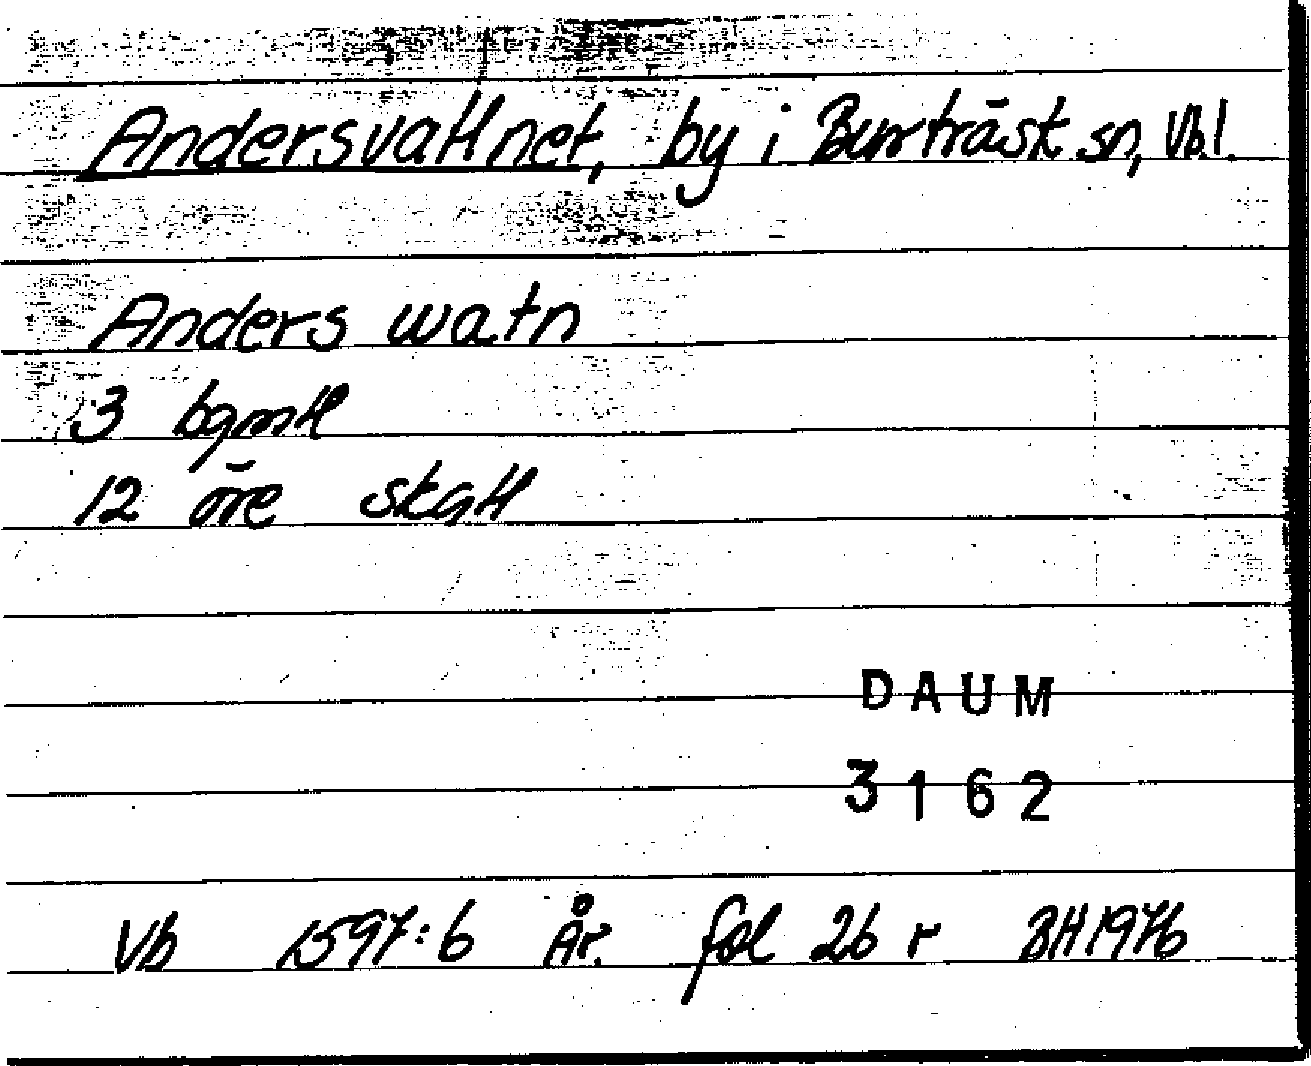 Andersvattnet, by i Burträsk sn, Vb.l.
Anders watn
3 bgmtl
12 öre skatt
DAUM
3162
Vb 1597:6 År. fol 26 r BH 1976